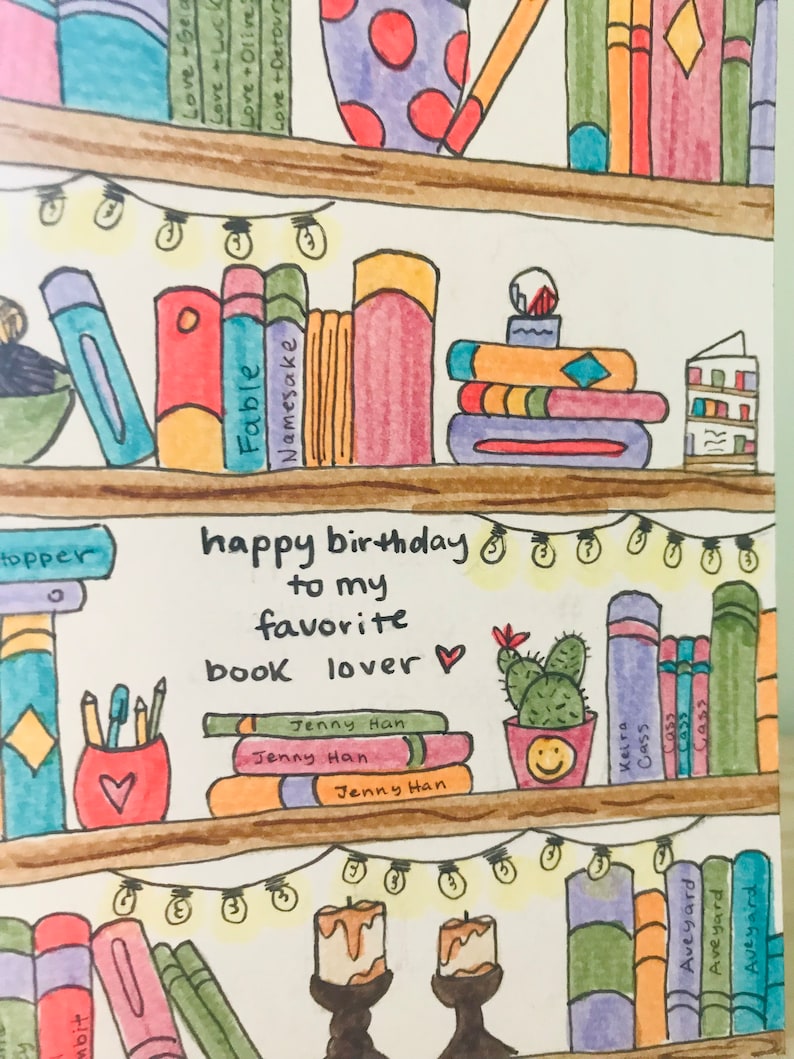 Love + Gela
Love + Luck
Love + Olive
Love + Detours
Fable
Namesake
topper
happy birthday
to my
favorite
book lover
Jenny Han
Jenny Han
Jenny Han
Keira
Cass
Cass
Cass
Cass
Aveyard
Aveyard
Aveyard
mbit